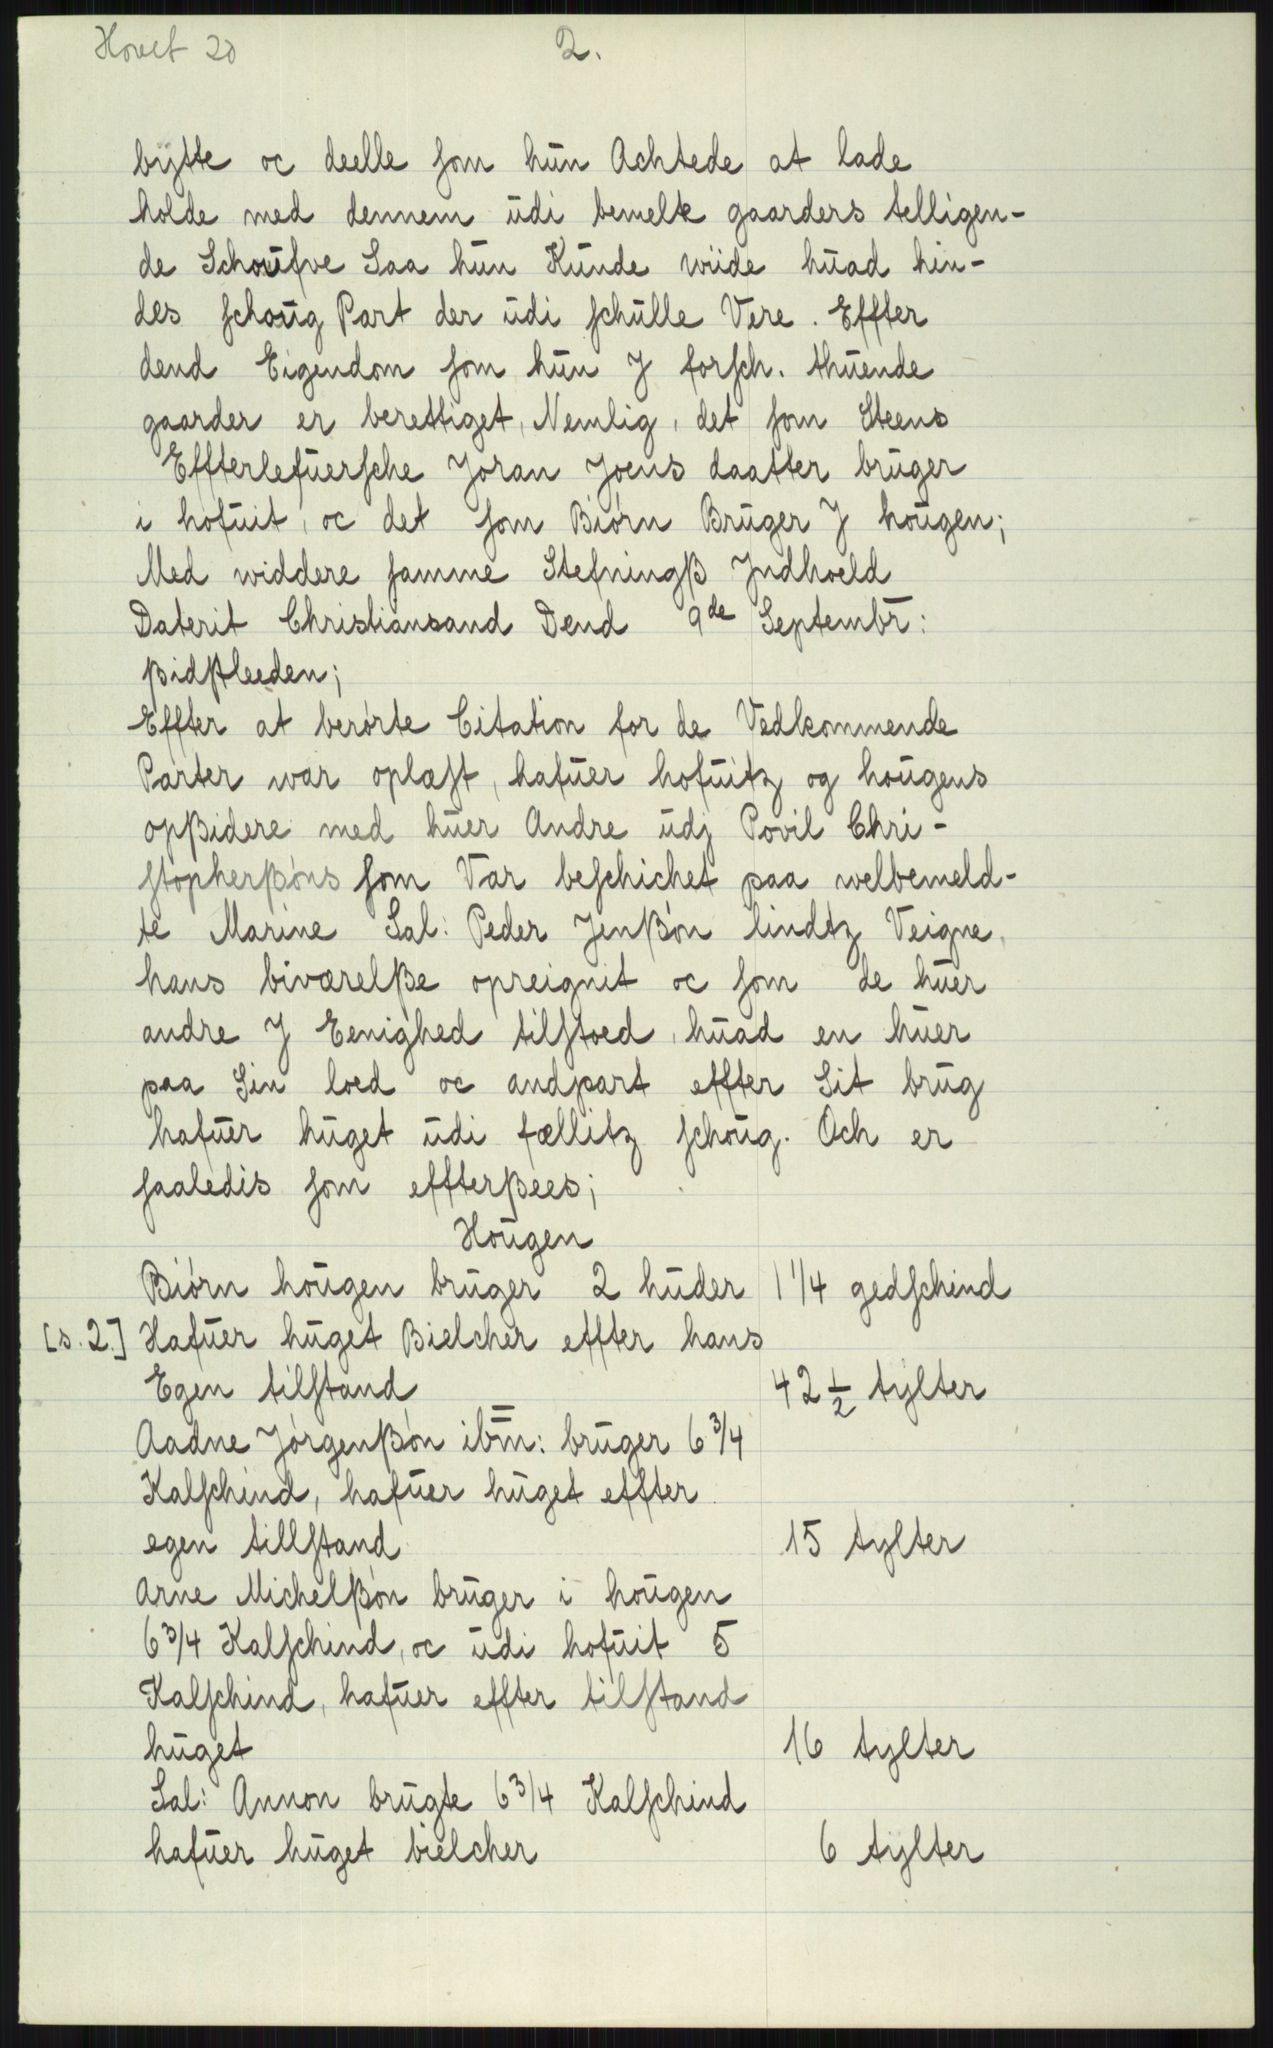 Hovet 20
2.
bytte oc deelle som hun Achtede at lade
holde med dennem udi bemelte gaarders telligen-
de Schoufve Saa hun Kunde wiide huad hin-
des schoug Part der udi schulle Vere. Effter
dend Eigendom som hun J forsch. thuende
gaarder er berettiget, Nemlig, det som Steens
Effterlefuersche Joran Joens daatter bruger
i hofuit, oc det som Biørn Bruger J hougen;
Med widdere samme Stefningß Jndhoeld
Daterit Christiansand Dend 9de Septembr:
ßidstleeden;
Effter at berørte Citation for de Vedkommende
Parter war oplæst, hafuer hofuitz og hougens
opßidere med huer Andre udj Povil Chri-
stopherßøns som Var beschichet paa welbemeld-
te Marine Sal: Peder Jenßøn lindtz Veigne,
hans biværelße opreignit oc som de huer
andre J Eenighed tilstoed, huad en huer
paa Sin loed oc andpart effter Sit brug
hafuer huget udi fællitz schoug. Och er
saaledis som effterßees;
Hougen
Biørn hougen bruger 2 huder 1 1/4 gedschind
[s. 2.] Hafuer huget Bielcher effter hans
Egen tilstand 42 1/2 tylter
Aadne Jørgenßøn ibm: bruger 6 3/4
Kalschind, hafuer huget effter
egen tillstand 15 tylter
Arne Michelßøn bruger i hougen
6 3/4 Kalschind, oc udi hofuit 5
Kalschind, hafuer effter tilstand
huget 16 tylter
Sal: Annon brugte 6 3/4 Kalschind
hafuer huget bielcher 6 tylter